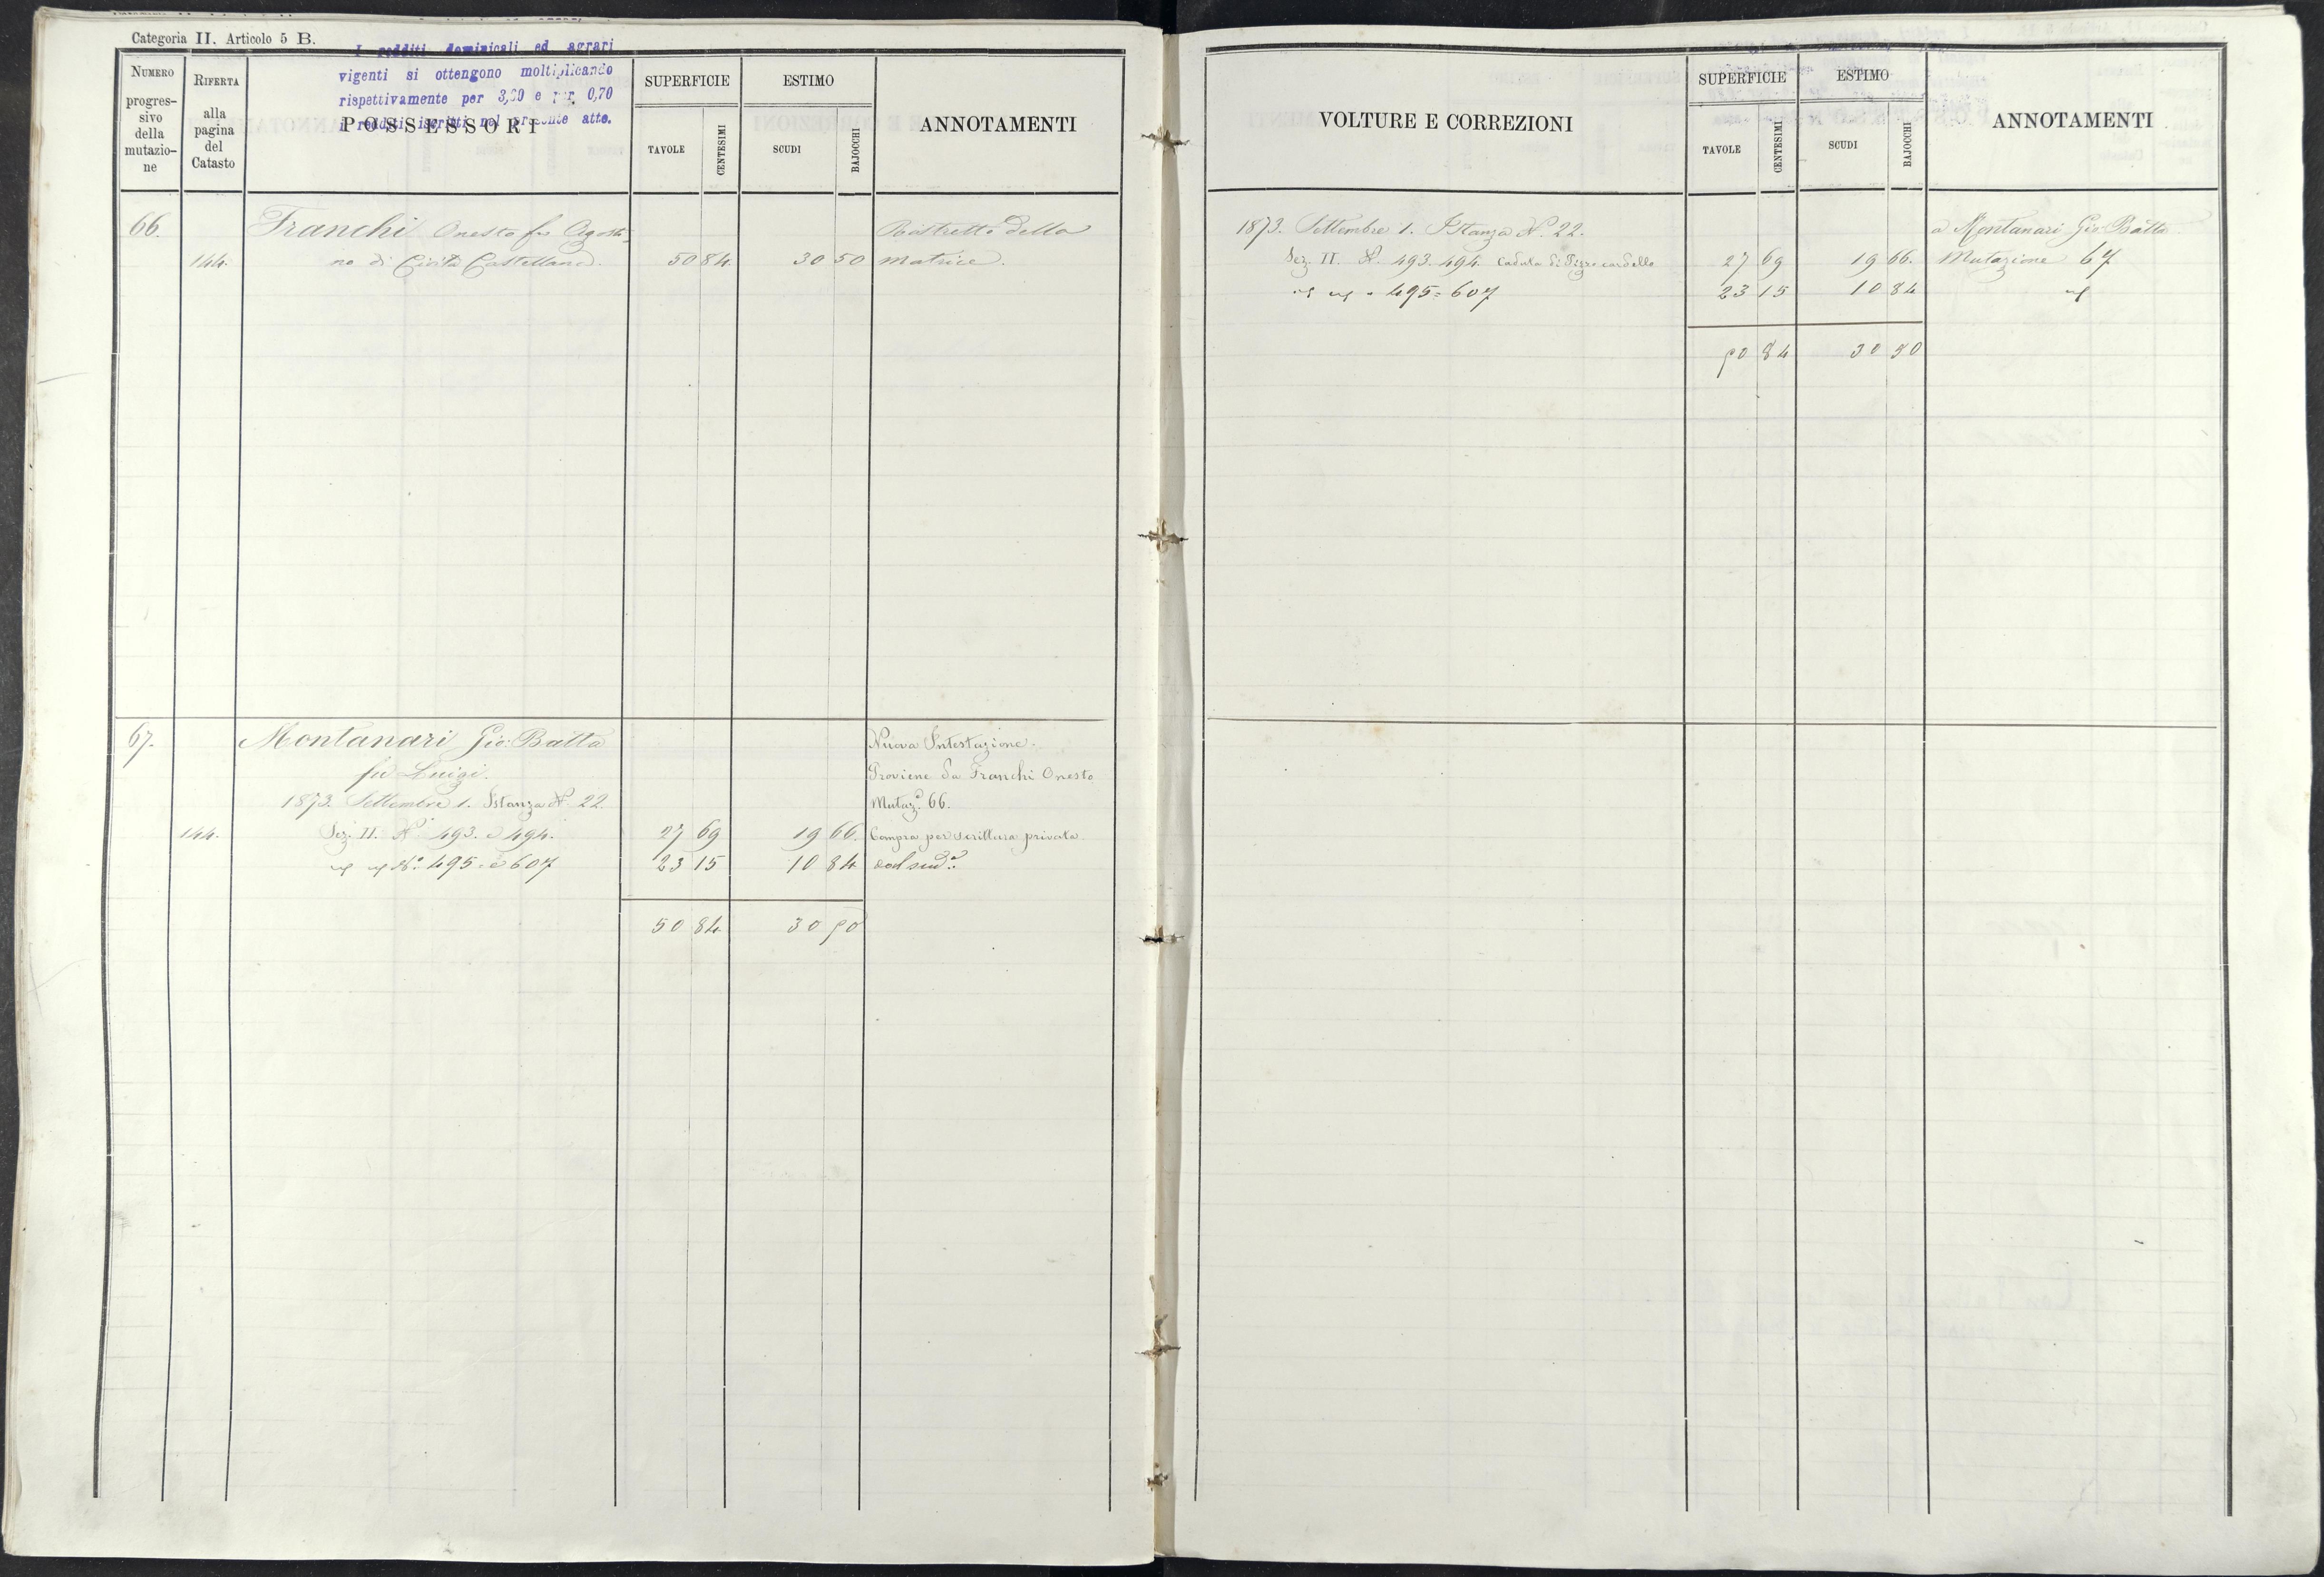 Categoria II. Articolo 5 B.
I redditi dominicali ed agrari
vigenti si ottengono moltiplicando
rispettivamente per 3,60 e per 0,70
i redditi iscritti nel presente atto.
NUMERO
progres-
sivo
della
mutazio-
ne
RIFERTA
alla
pagina
del
Catasto
POSSESSORI
SUPERFICIE
TAVOLE
CENTESIMI
ESTIMO
SCUDI
BAJOCCHI
ANNOTAMENTI
66. Franchi Onesto fu Agosti-
144. no di Civita Castellana. 50 84. 30 50
Ristretto della
Matrice.
67. Montanari Gio: Batta
fu Luigi.
1873. Settembre 1. Istanza N. 22.
144. Sez. II. N. 493. e 494. 27 69 19 66.
N.° 495. e 607 23 15 10 84
50 84 30 50
Nuova Intestazione.
Proviene da Franchi Onesto
Mutaz.e 66.
Compra per scrittura privata.
VOLTURE E CORREZIONI
SUPERFICIE
TAVOLE
CENTESIMI
ESTIMO
SCUDI
BAJOCCHI
ANNOTAMENTI
1873. Settembre 1. Istanza N. 22.
Sez. II. N. 493. 494. 27 69 19 66.
495 = 607 23 15 10 84
50 84 30 50
a Montanari Gio Batta
Mutazione 67